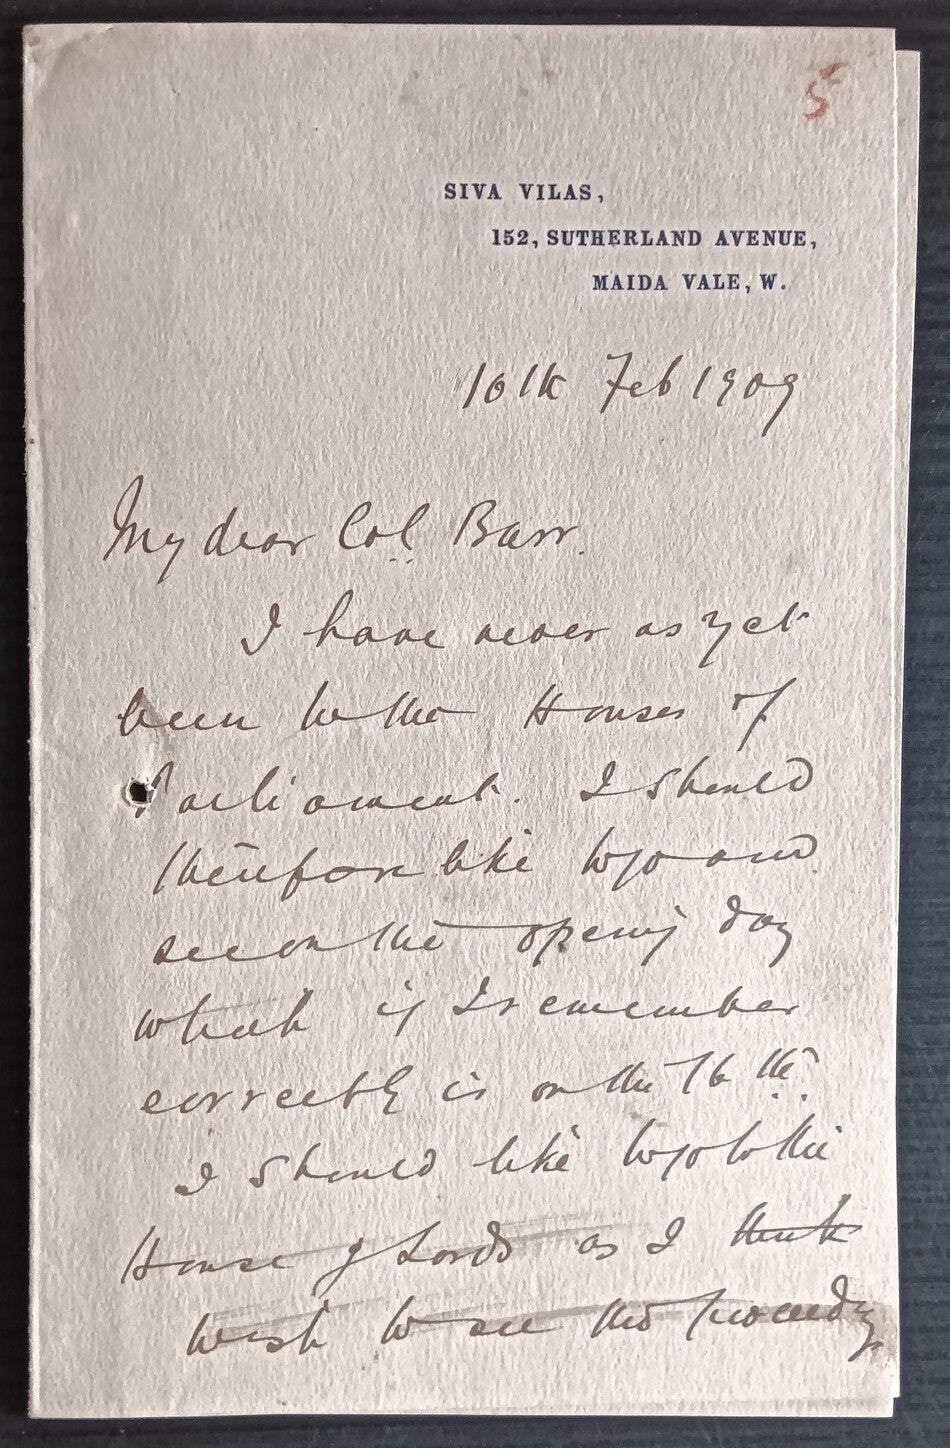 5
SIVA VILAS,
152, SUTHERLAND AVENUE,
MAIDA VALE, W.
10th Feb 1909
My dear Col. Barr.
I have never as yet
been to the Houses of
Parliament. I should
therefore like to go and
see on the opening day
which if I remember
correctly is on the 16th.
I should like to go to the
House of Lords as I think
wish to see the proceedgs